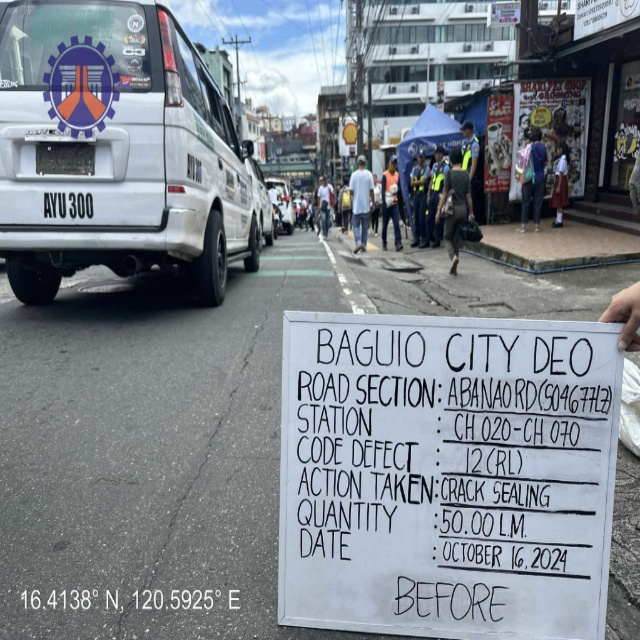 AYU 300
AYU 300
BAGUIO CITY DEO
ROAD SECTION: ABANAO RD (S04677LZ)
STATION : CH 020-CH 070
CODE DEFECT : 12 (RL)
ACTION TAKEN: CRACK SEALING
QUANTITY : 50.00 L.M.
DATE : OCTOBER 16, 2024
BEFORE
16.4138° N, 120.5925° E